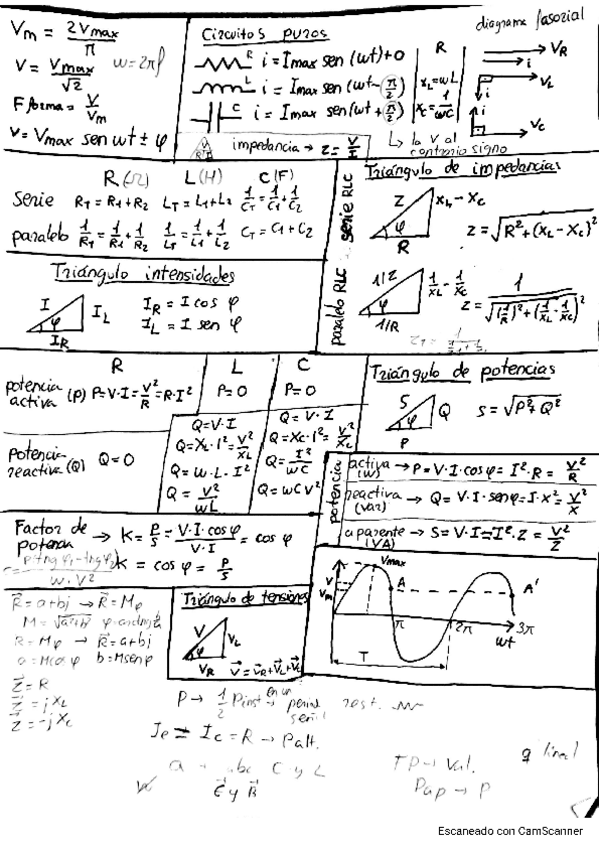 Vm = 2Vmax/π
V = Vmax/√2 w = 2πf
F forma = V/Vm
v = Vmax sen wt ± φ
Circuitos puros
R i = Imax sen (wt)+0
L i = Imax sen (wt - π/2)
C i = Imax sen (wt + π/2)
impedancia → Z = V/I
R
XL = wL
XC = 1/wC
↳ la V al
contrario signo
diagrama fasorial
VR
i
VL
i
i
VC
R(Ω) L(H) C(F)
Serie RT = R1+R2 LT = L1+L2 1/CT = 1/C1 + 1/C2
paralelo 1/RT = 1/R1 + 1/R2 1/LT = 1/L1 + 1/L2 CT = C1+C2
Triángulo intensidades
I φ IR IL
IR = I cos φ
IL = I sen φ
Triángulo de impedancias
serie RLC
Z φ R XL - XC
Z = √R²+(XL-XC)²
paralelo RLC
1/Z φ 1/R 1/XL - 1/XC
Z = 1/√(1/R)²+(1/XL - 1/XC)²
R L C
potencia
activa (P) P=V·I=V²/R=R·I² P=0 P=0
Potencia
reactiva (Q) Q=0
Q=V·I
Q=XL·I²=V²/XL
Q=w·L·I²
Q=V²/wL
Q=V·I
Q=XC·I²=V²/XC
Q=I²/wC
Q=wCV²
Triángulo de potencias
S φ P Q
S=√P²+Q²
potencia
activa (W) → P=V·I·cosφ=I²·R=V²/R
reactiva (Var) → Q=V·I·senφ=I·X²=V²/X
aparente (VA) → S=V·I=I²·Z=V²/Z
Factor de
potencia → K=P/S=V·I·cosφ/V·I=cos φ
K = cos φ = P/S
w·V²
R=a+bj → R=Mφ
R=Mφ → R=a+bj
a=Mcosφ b=Msenφ
Z=R
Z=jXL
Z=-jXC
Triángulo de tensiones
V φ VR VL
V=VR+VL+VC
Vmax
V
Vm
A A'
π 2π 3π
wt
T
P → 1/2 Pinst
= IC = R → Palt.
C y L
C y B
TP → Val.
Pap → P
Escaneado con CamScanner